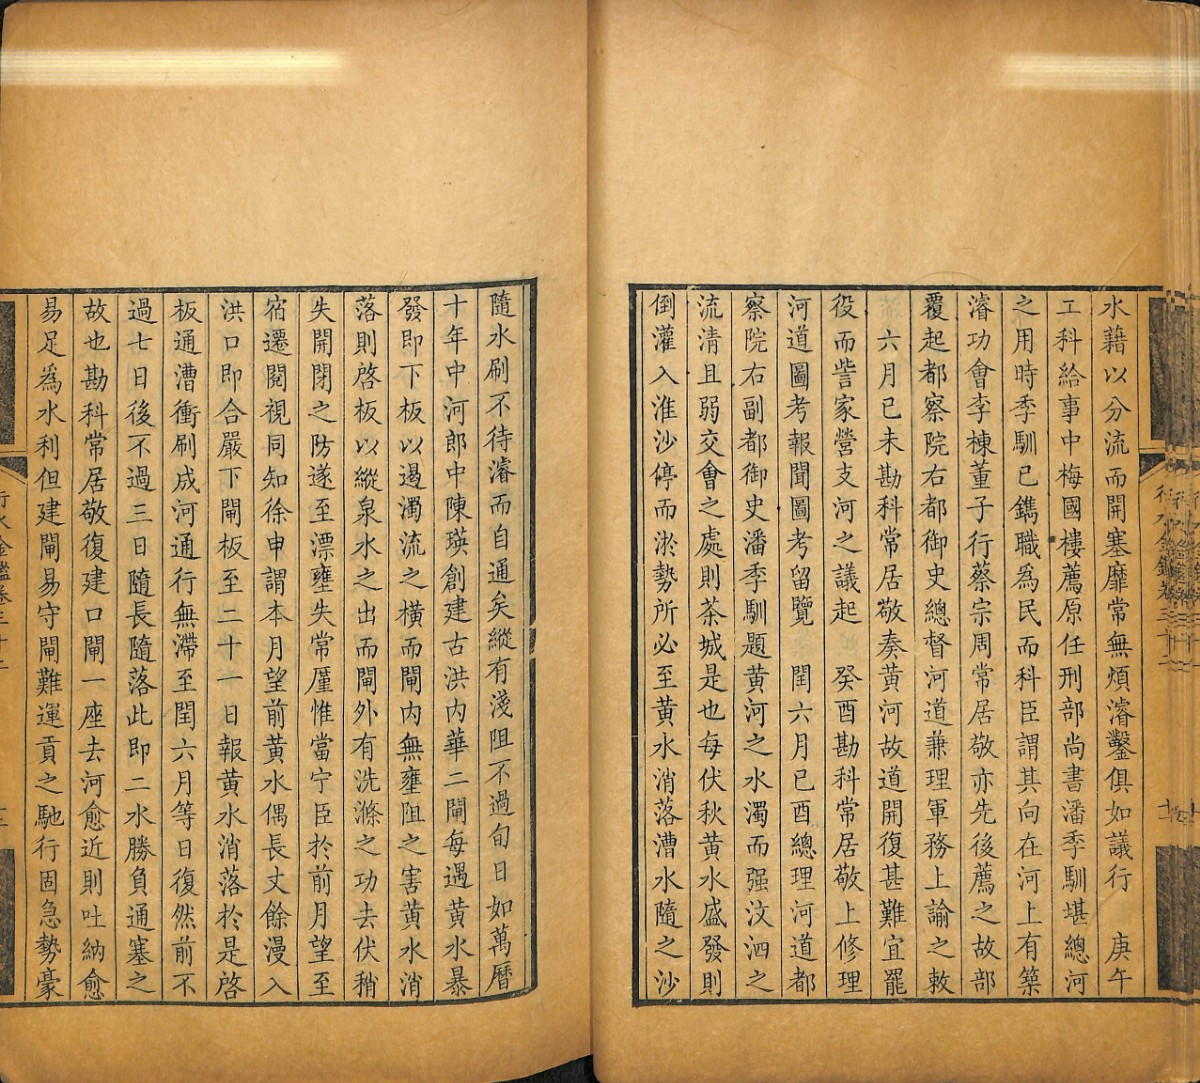 水藉以分流而開塞靡常無煩濬鑿俱如議行　庚午
工科給事中梅國樓薦原任刑部尚書潘季馴堪總河
之用時季馴已鐫職為民而科臣謂其向在河上有築
濬功會李棟董子行蔡宗周常居敬亦先後薦之故部
覆起都察院右都御史總督河道兼理軍務上諭之敕
六月己未勘科常居敬奏黃河故道開復甚難宜罷
役而訾家營支河之議起　癸酉勘科常居敬上修理
河道圖考報聞圖考留覽　閏六月己酉總理河道都
察院右副都御史潘季馴題黃河之水濁而强汶泗之
流清且弱交會之處則茶城是也每伏秋黃水盛發則
倒灌入淮沙停而淤勢所必至黃水消落漕水隨之沙
隨水刷不待濬而自通矣縱有淺阻不過旬日如萬曆
十年中河郎中陳瑛創建古洪內華二閘每遇黃水暴
發即下板以遏濁流之橫而閘內無壅阻之害黃水消
落則啓板以縱泉水之出而閘外有洗滌之功去伏稍
失開閉之防遂至漂壅失常厪惟當宁臣於前月望至
宿遷閱視同知徐申謂本月望前黃水偶長丈餘漫入
洪口即合嚴下閘板至二十一日報黃水消落於是啓
板通漕衝刷成河通行無滯至閏六月等日復然前不
過七日後不過三日隨長隨落此即二水勝負通塞之
故也勘科常居敬復建口閘一座去河愈近則吐納愈
易足為水利但建閘易守閘難運貢之馳行固急勢豪
行水金鑑卷三十二